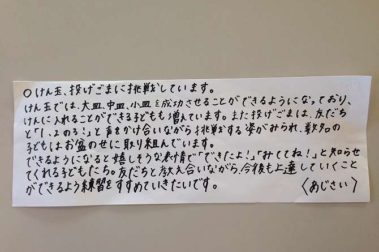 ○けん玉、投げごまに挑戦しています。
けん玉では、大皿、中皿、小皿を成功させることができるようになっており、
けんに入れることができる子どもも増えています。また投げごまは、友だち
と「1、2のろ!」と声をかけ合いながら挑戦する姿がみられ、数名の
子どもはお盆のせに取り組んでいます。
できるようになると嬉しそうな表情で「できたよ!」「みててね!」と知らせ
てくれる子どもたち。友だちと教え合いながら、今後も上達していくこと
ができるよう練習をすすめていきたいです。
〈あじさい〉